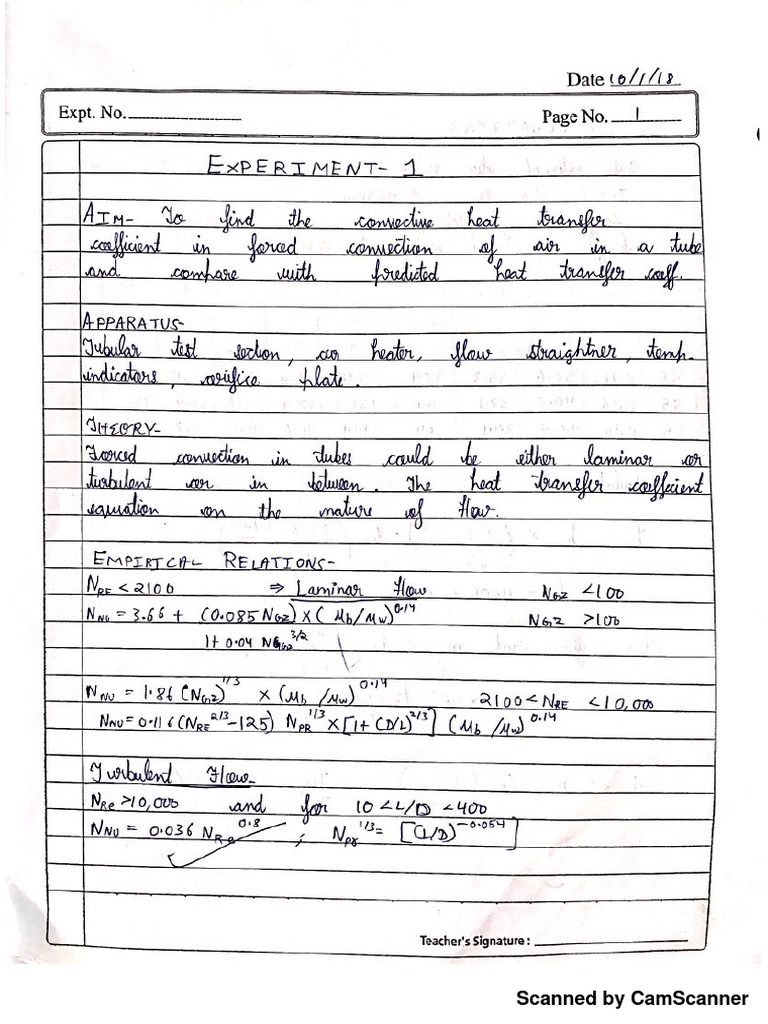 Date 10/1/18
Expt. No. Page No. 1
EXPERIMENT- 1
AIM- To find the convective heat transfer
coefficient in forced convection of air in a tube
and compare with predicted heat transfer coeff.
APPARATUS-
Tubular test section, air heater, flow straightner, temp.
indicators, orifice plate.
THEORY-
Forced convection in tubes could be either laminar or
turbulent or in between. The heat transfer coefficient
equation on the nature of flow.
EMPIRICAL RELATIONS-
N_RE < 2100 ⇒ Laminar flow N_GZ < 100
N_NU = 3.66 + (0.085 N_GZ) × (μ_b/μ_w)^0.14 N_GZ > 100
1 + 0.04 N_GZ^3/2
N_NU = 1.86 (N_GZ)^1/3 × (μ_b/μ_w)^0.14 2100 < N_RE < 10,000
N_NU = 0.116 (N_RE^2/3 - 125) N_PR^1/3 × [1 + (D/L)^2/3] (μ_b/μ_w)^0.14
Turbulent Flow-
N_Re > 10,000 and for 10 < L/D < 400
N_NU = 0.036 N_Re^0.8 ; N_pr^1/3 = [(L/D)^-0.054]
Teacher's Signature :
Scanned by CamScanner